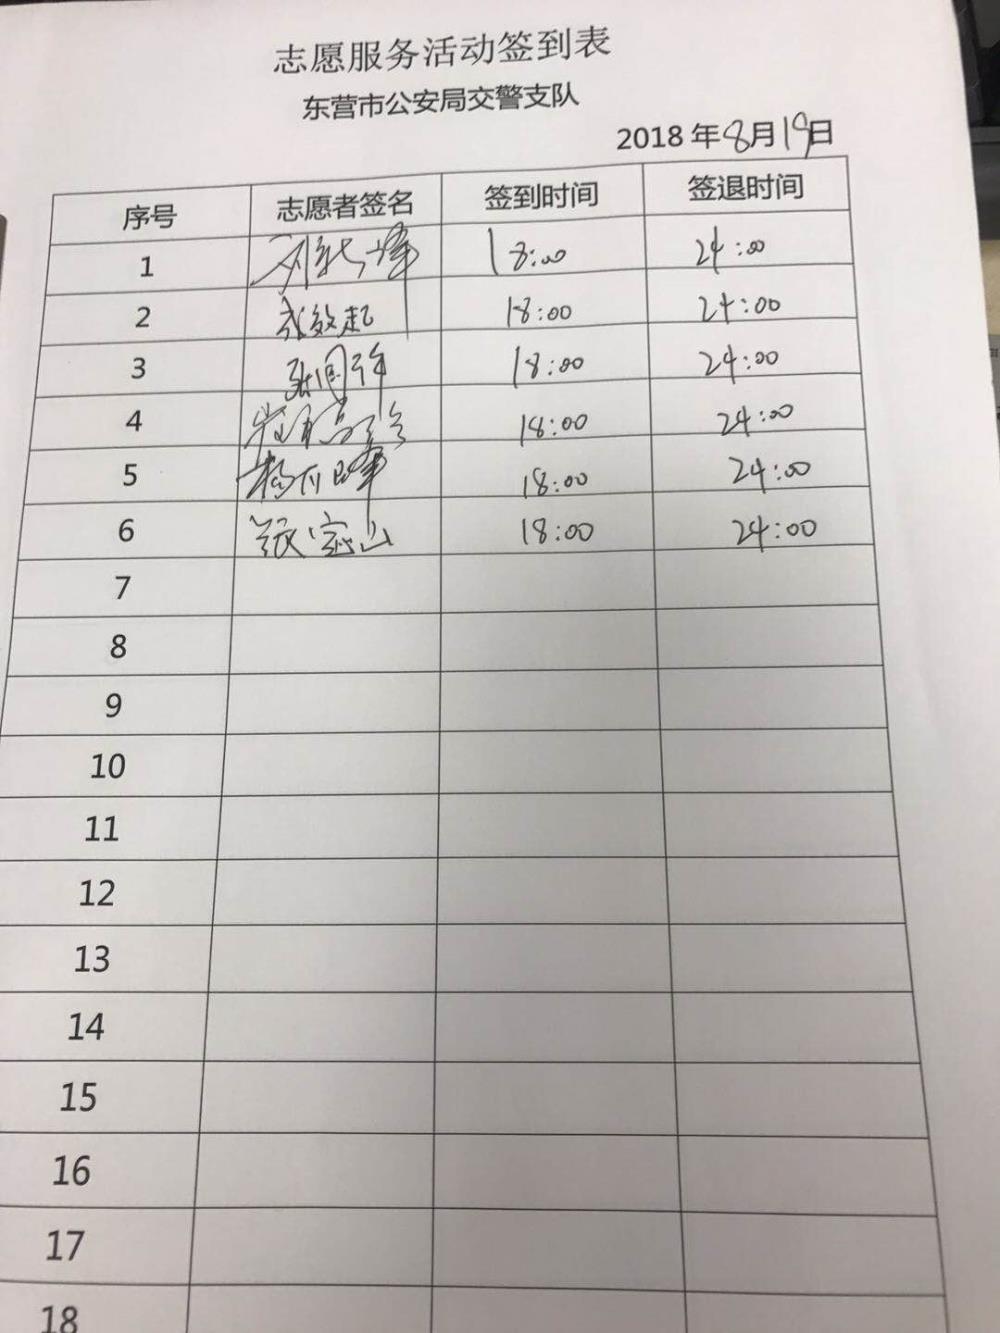 志愿服务活动签到表
东营市公安局交警支队
2018年8月19日
序号 志愿者签名 签到时间 签退时间
1 18:00 24:00
2 18:00 24:00
3 张国锋 18:00 24:00
4 18:00 24:00
5 18:00 24:00
6 张宝山 18:00 24:00
7
8
9
10
11
12
13
14
15
16
17
18